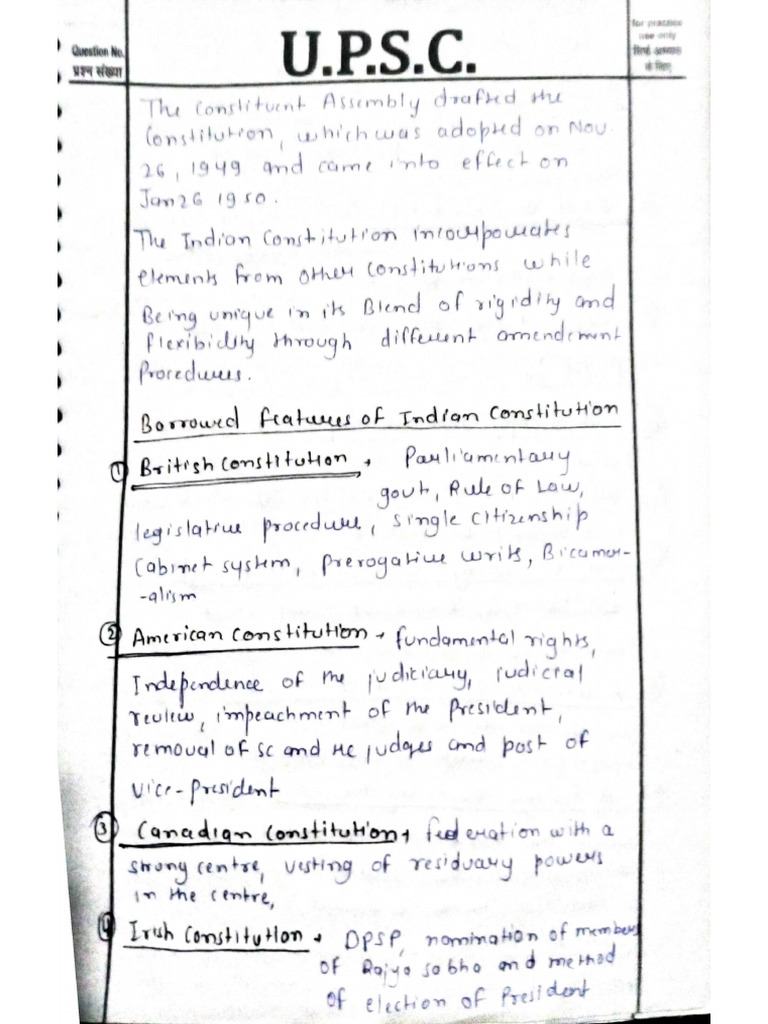 Question No.
प्रश्न संख्या
U.P.S.C.
for practice
use only
सिर्फ अभ्यास
के लिए
The Constituent Assembly drafted the
Constitution, which was adopted on Nov.
26, 1949 and came into effect on
Jan 26 1950.
The Indian Constitution incorporates
elements from other constitutions while
Being unique in its Blend of rigidity and
flexibility through different amendment
Procedures.
Borrowed features of Indian Constitution
① British Constitution → Parliamentary
govt, Rule of Law,
legislative procedure, single citizenship
Cabinet system, prerogative writs, Bicamer-
-alism
② American Constitution → fundamental rights,
Independence of the judiciary, judicial
review, impeachment of the President,
removal of SC and HC judges and post of
Vice-President
③ Canadian Constitution → federation with a
strong centre, vesting of residuary powers
in the centre,
④ Irish Constitution → DPSP, nomination of members
of Rajya sabha and method
of election of President